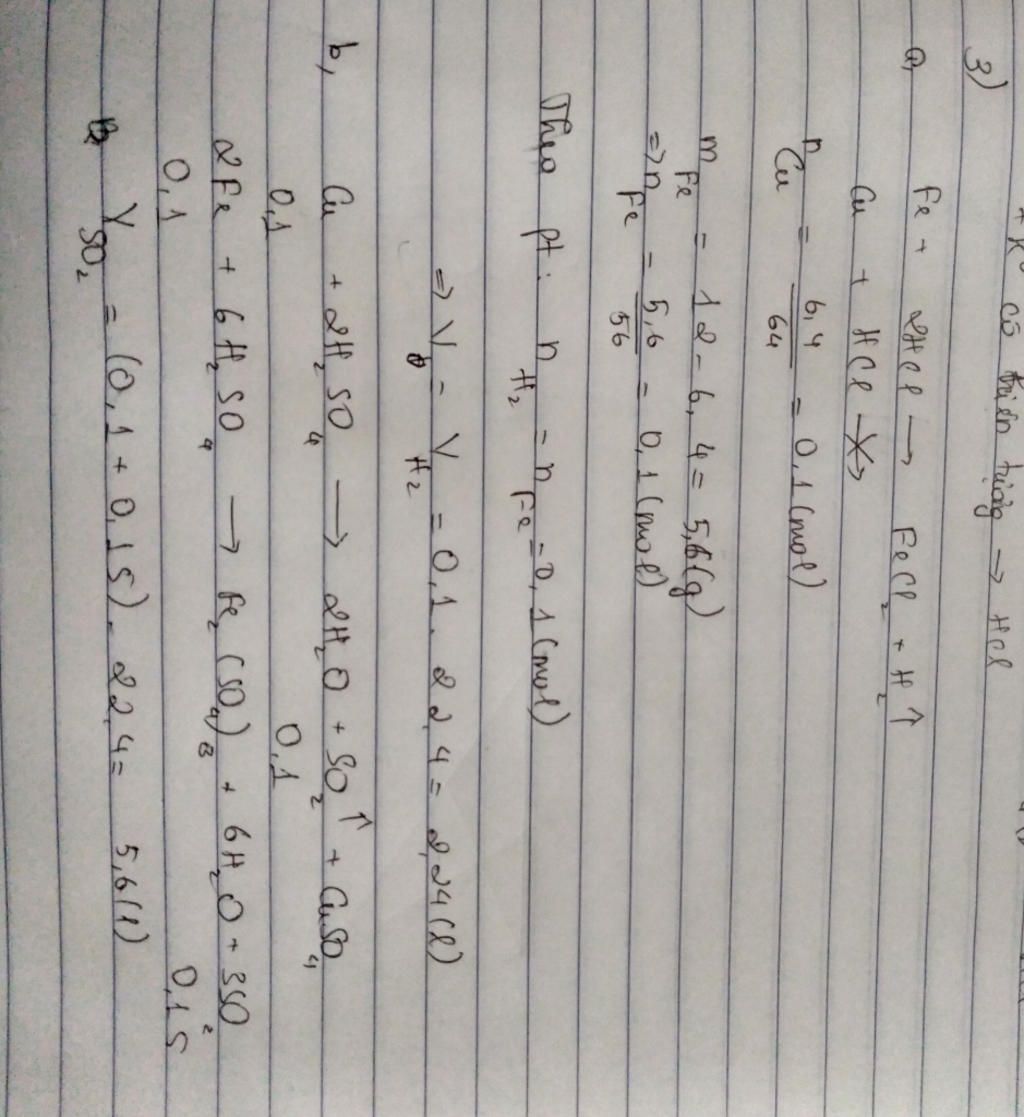 + K° có hiện tượng → HCl
3)
a, Fe + 2HCl → FeCl₂ + H₂ ↑
Cu + HCl -X->
n Cu = 6,4/64 = 0,1 (mol)
m Fe = 12 - 6,4 = 5,6 (g)
=> n Fe = 5,6/56 = 0,1 (mol)
Theo pt: n H₂ = n Fe = 0,1 (mol)
=> V = V H₂ = 0,1 . 22,4 = 2,24 (l)
b, Cu + 2H₂SO₄ → 2H₂O + SO₂ ↑ + CuSO₄
0,1 0,1
2Fe + 6H₂SO₄ → Fe₂(SO₄)₃ + 6H₂O + 3SO₂
0,1 0,15
V SO₂ = (0,1 + 0,15) . 22,4 = 5,6 (l)